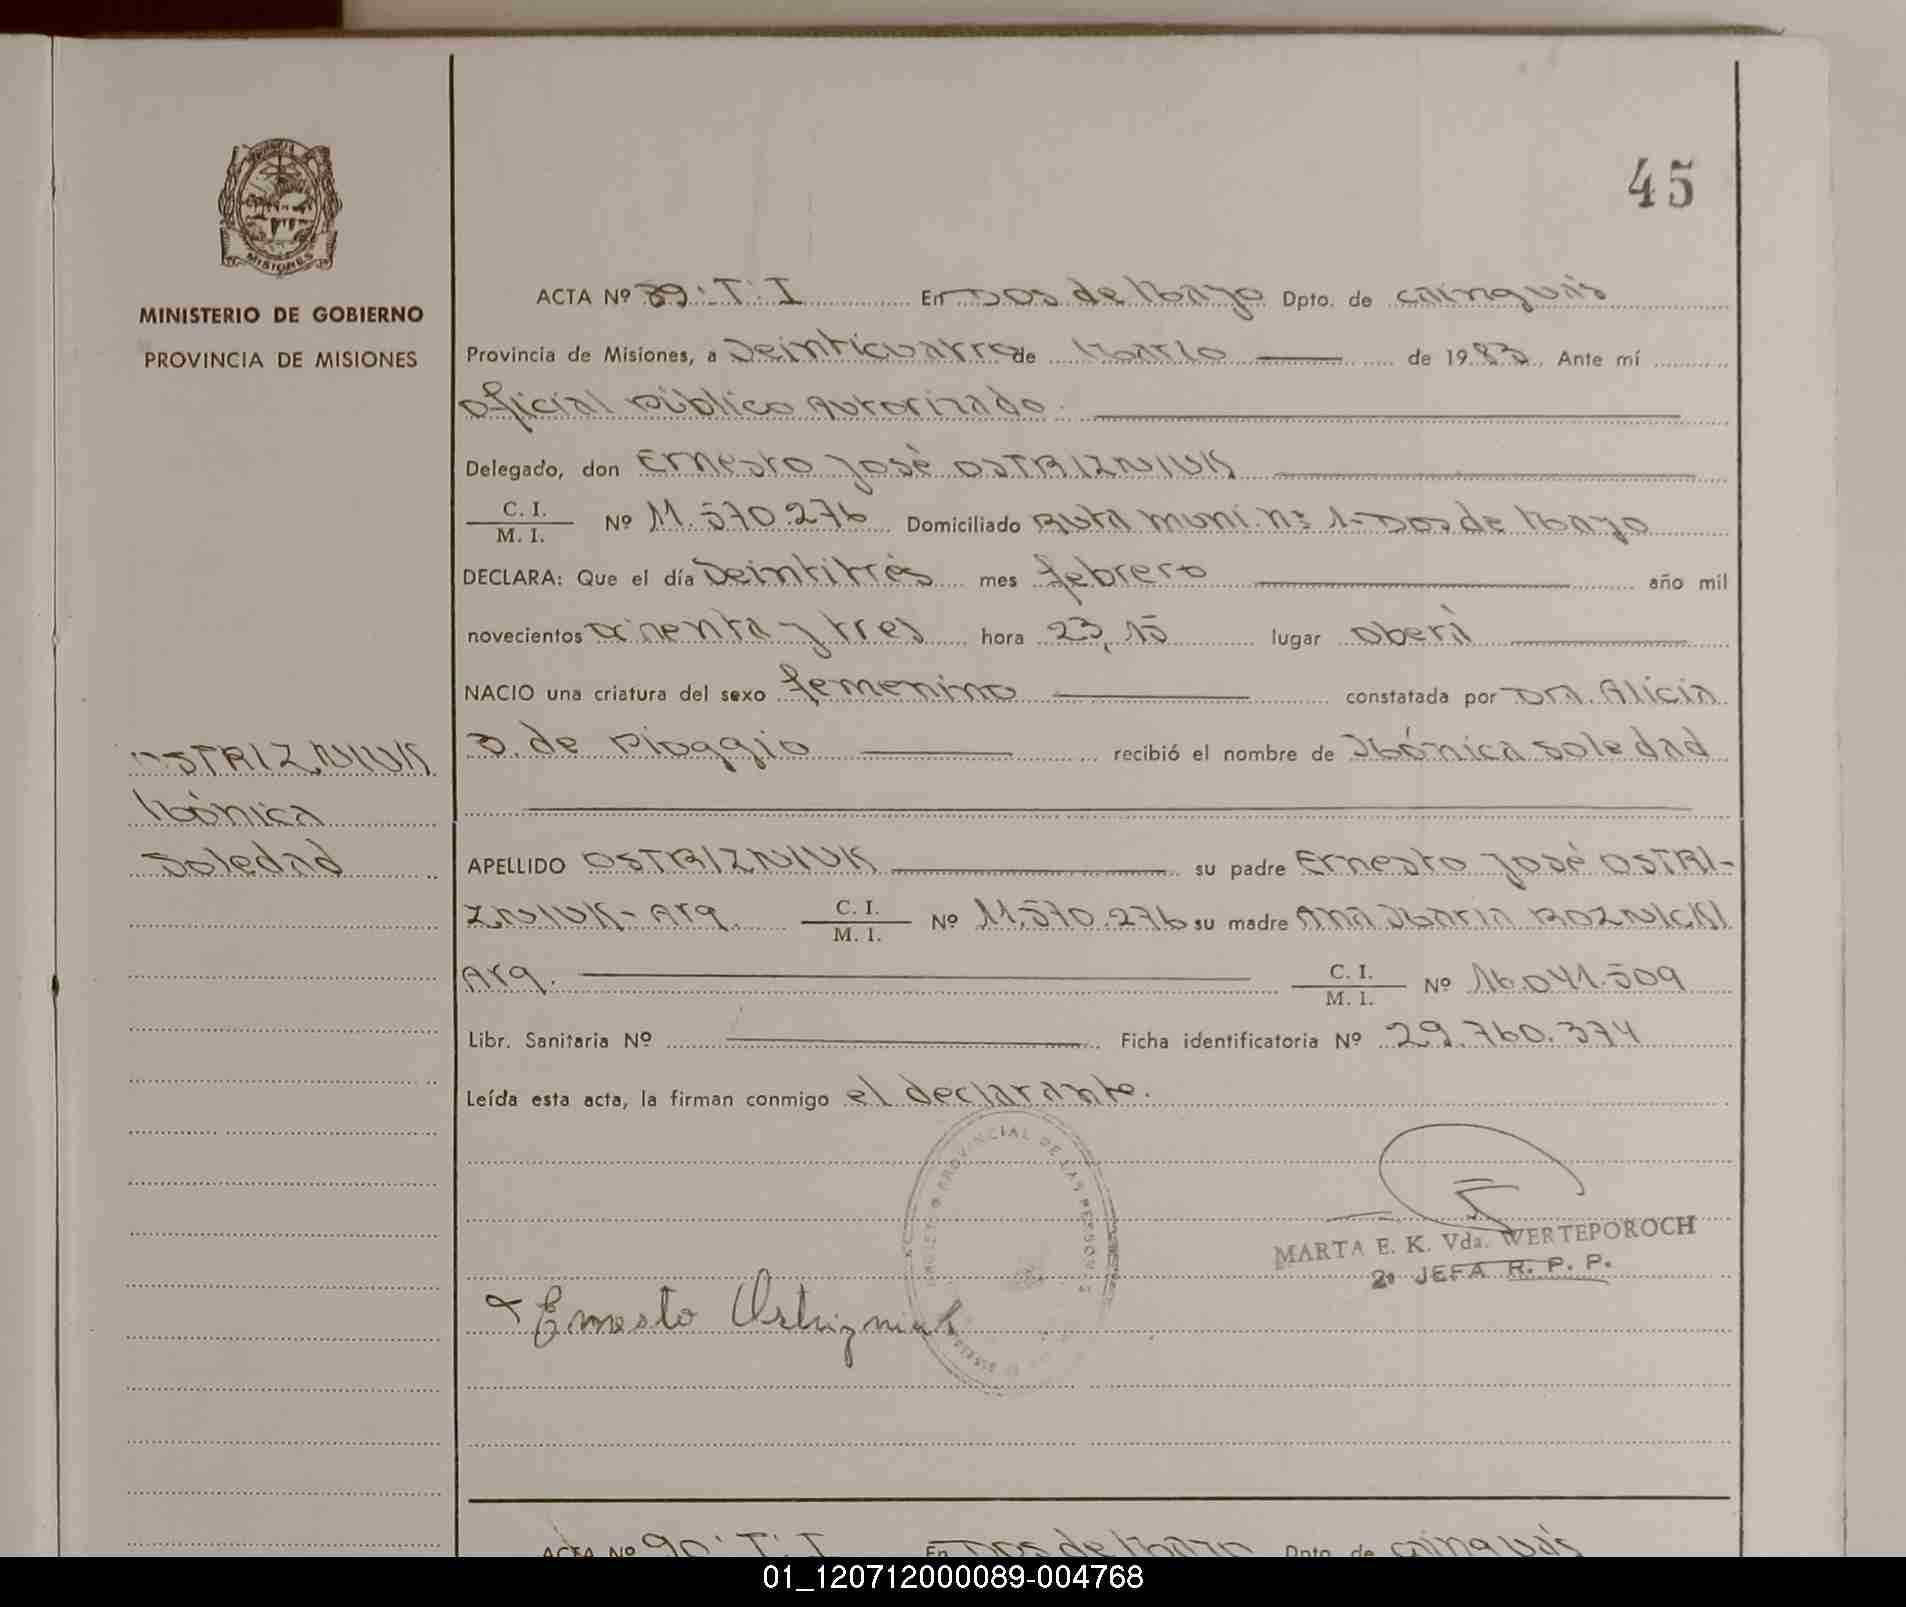 45
MINISTERIO DE GOBIERNO
PROVINCIA DE MISIONES
MISIONES
ACTA Nº 89·T·I En Dos de Mayo Dpto. de Cainguás
Provincia de Misiones, a Veinticuatro de Marzo de 1983. Ante mí
Oficial Público Autorizado.
Delegado, don Ernesto José OSTRIZNIUK
C. I.
M. I. Nº 11.570.276 Domiciliado Ruta Muni. Nº 1-Dos de Mayo
DECLARA: Que el día Veintitrés mes febrero año mil
novecientos ochenta y tres hora 23,15 lugar Oberá
NACIO una criatura del sexo femenino constatada por Dra. Alicia
D. de Pioggio recibió el nombre de Mónica Soledad
OSTRIZNIUK
Mónica
Soledad
APELLIDO OSTRIZNIUK su padre Ernesto José OSTRI-
ZNIUK-Arg. C. I.
M. I. Nº 11.570.276 su madre Ana María ROZNICKI
Arg. C. I.
M. I. Nº 16.041.509
Libr. Sanitaria Nº Ficha identificatoria Nº 29.760.374
Leída esta acta, la firman conmigo el declarante.
PROVINCIAL DE LAS PERSONAS
MARTA E. K. Vda. WERTEPOROCH
2º JEFA R. P. P.
Ernesto Ostrizniuk
ACTA Nº 90·T·I En Dos de Mayo Dpto. de Cainguás
01_120712000089-004768